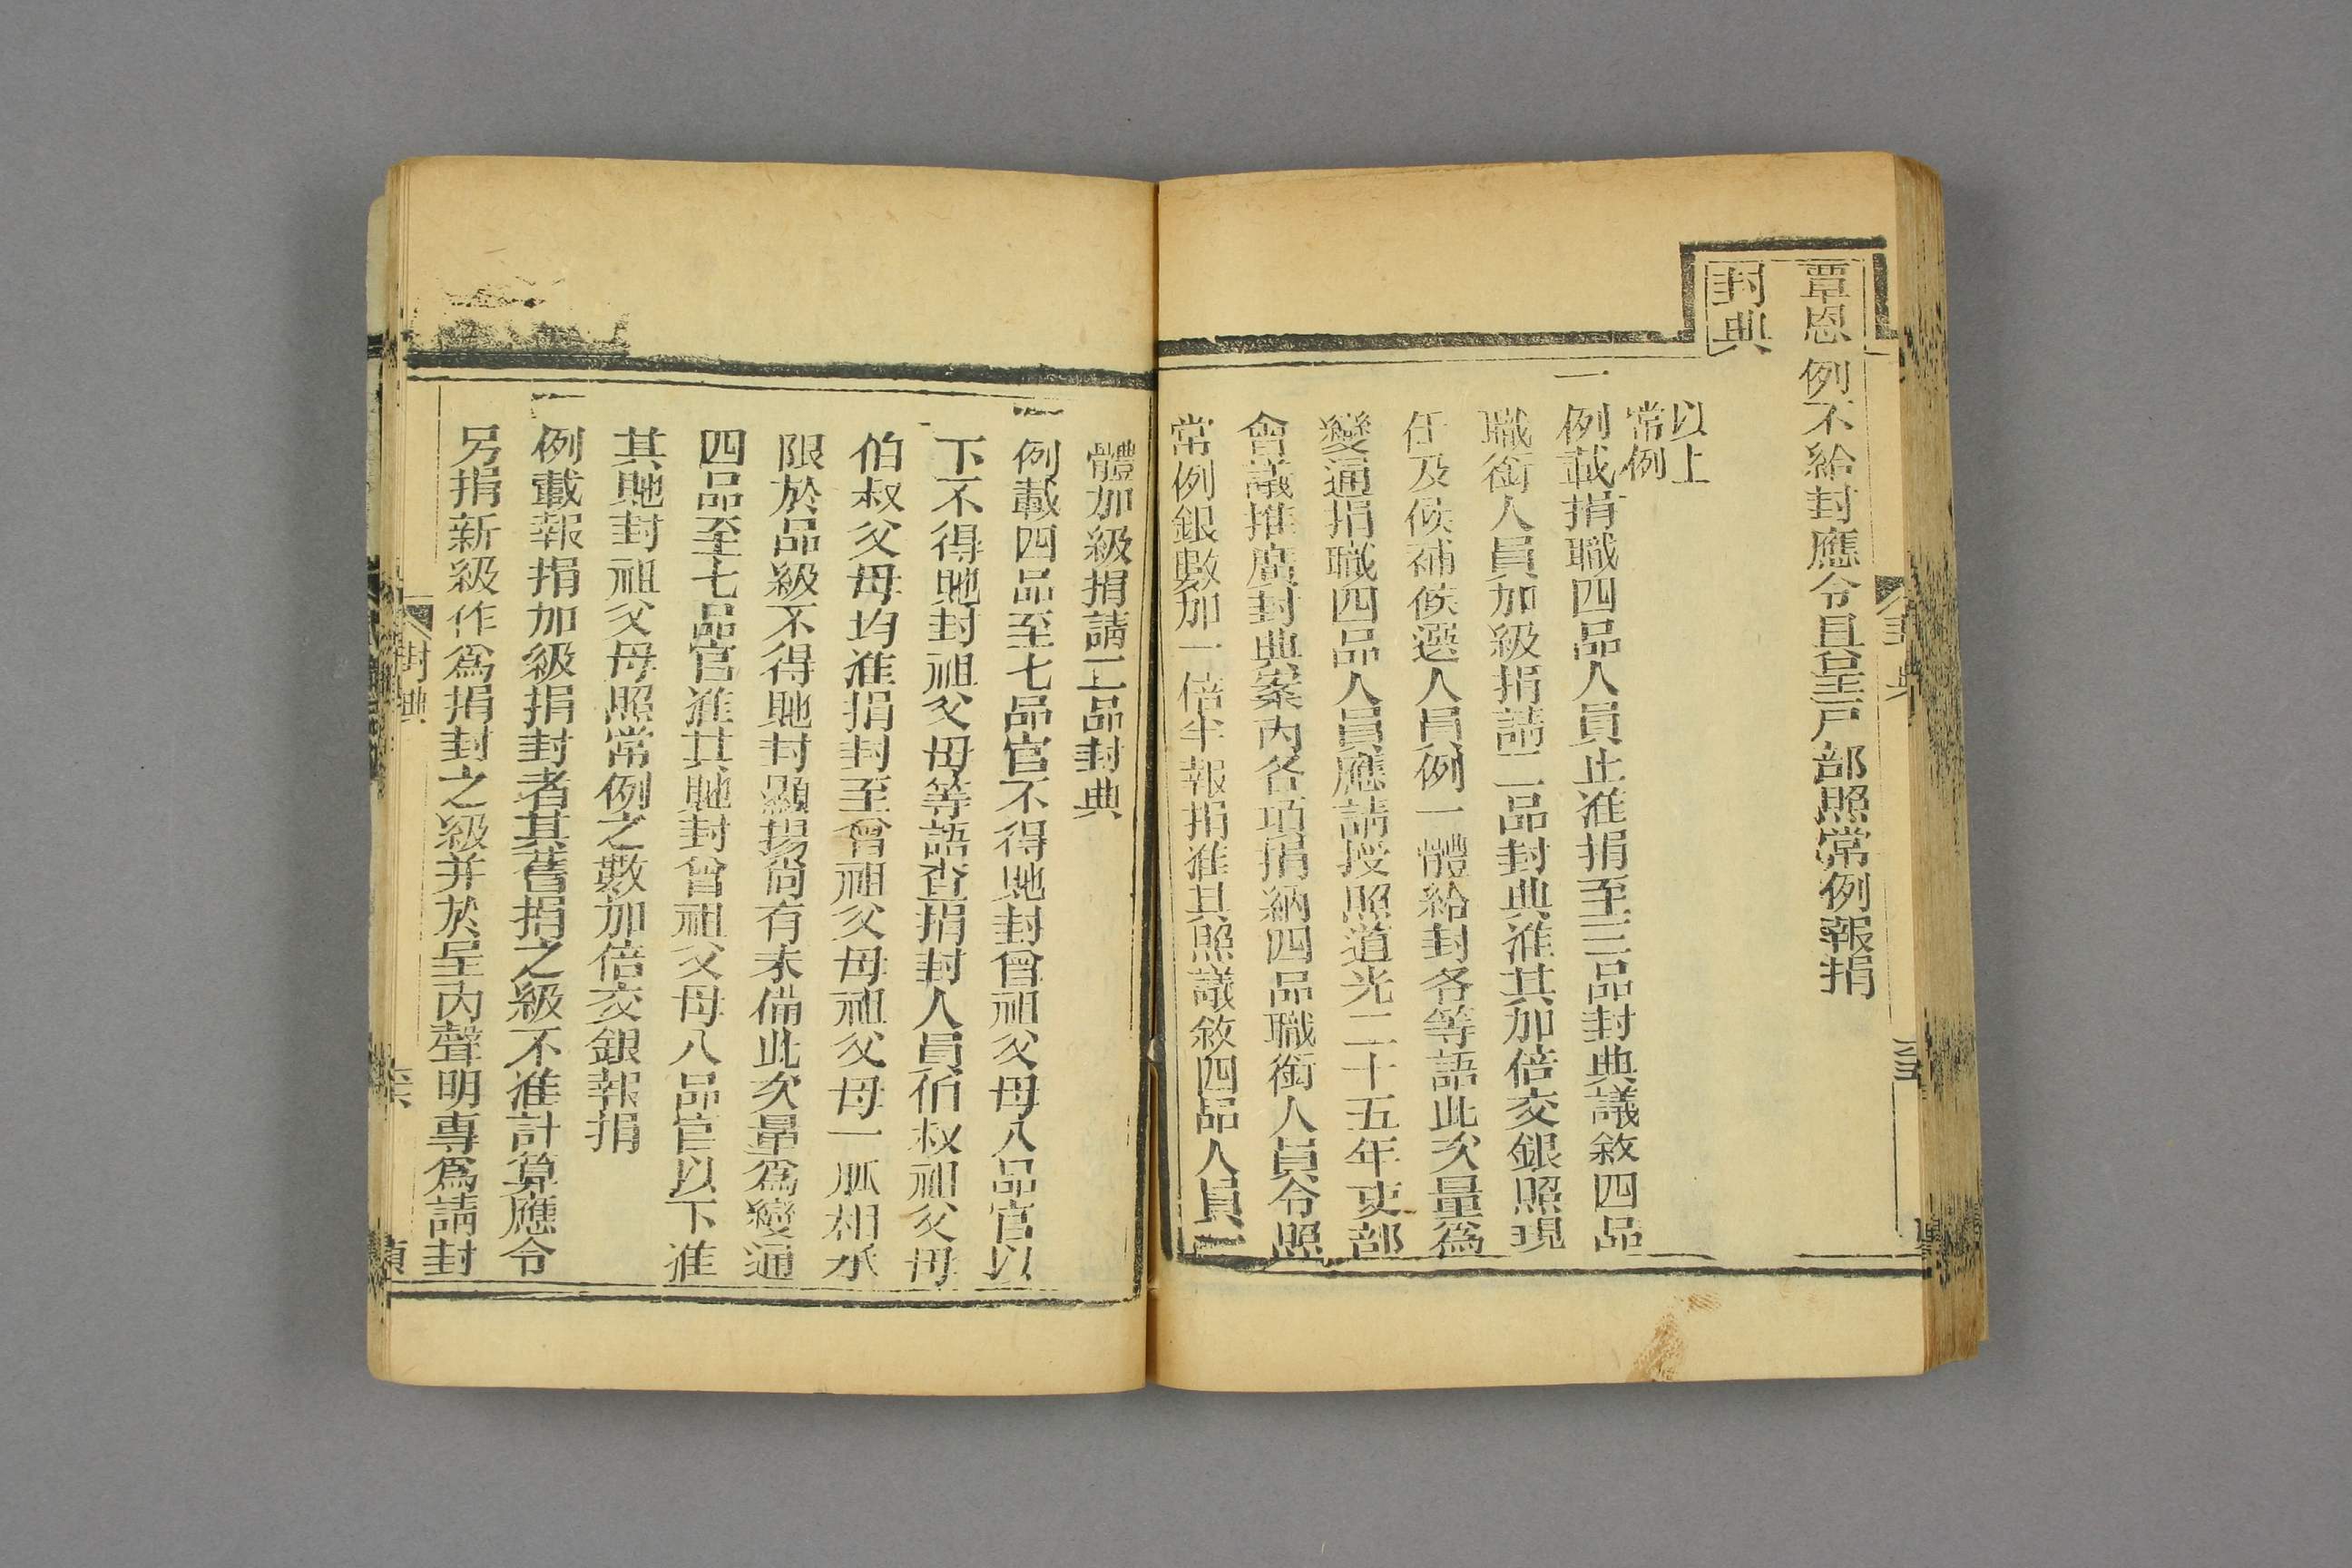 覃恩例不給封應令具呈戶部照常例報捐
封典
以上
常例
一例載捐職四品人員止准捐至三品封典議敘四品
職銜人員加級捐請二品封典准其加倍交銀照現
任及候補候選人員例一體給封各等語此次量為
變通捐職四品人員應請授照道光二十五年吏部
會議推廣封典案內各項捐納四品職銜人員令照
常例銀數加一倍半報捐准其照議敘四品人員一
體加級捐請二品封典
一例載四品至七品官不得貤封曾祖父母八品官以
下不得貤封祖父母等語查捐封人員伯叔祖父母
伯叔父母均准捐封至曾祖父母祖父母一脈相承
限於品級不得貤封顯揚尚有未備此次量為變通
四品至七品官准其貤封曾祖父母八品官以下准
其貤封祖父母照常例之數加倍交銀報捐
一例載報捐加級捐封者其舊捐之級不准計算應令
另捐新級作為捐封之級并於呈內聲明專為請封
封典